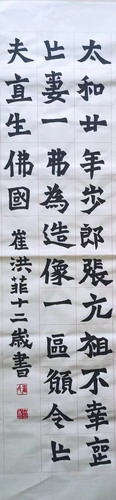 太和廿年步郎張元祖不幸喪
亡妻一弗為造像一區願令亡
夫直生佛國
崔洪菲十二歲書